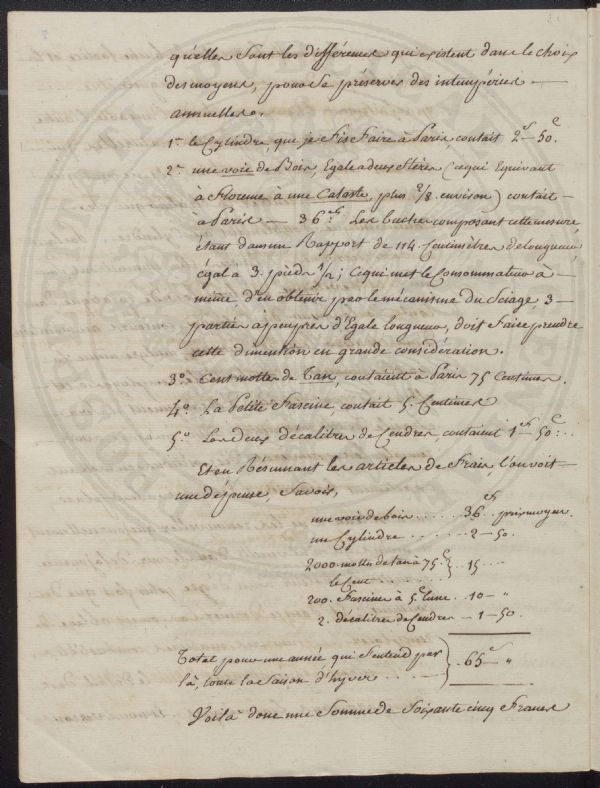 qu'elles sont les différences qui existent dans le choix
des moyens, pour se préserver des intempéries —
annuelles.
1° le Cylindre, que je fis faire à Paris, contait 2fs — 50c.
2° une voie de Bois, Egale a deux Stères (ce qui Equivaut
à Florence à une Cataste, plus 2/8. environ) contait —
à Paris — 36fs. Les buches composant cette mesure
étant dans un Rapport de 114 Centimètres de longueur,
égal a 3. pieds 1/2; Ce qui met le Consommateur à —
même, d'en obtenir par le mécanisme du Sciage, 3 —
parties à peu près d'Egale longueur, doit faire prendre
cette dimention en grande considération.
3° Cent mottes de Tan, contaient à Paris 75 Centimes.
4° La Petite Fascine, contait 5. Centimes
5° Les deux décalitres de Cendres, contaient 1fs — 50c..
Et en Résumant les articles de Frais, l'on voit —
une dépense, Savoir,
une voie de bois . . . . . . 36fs.. prix moyen.
un Cylindre . . . . . . 2 — 50.
2000. mottes de tan à 75.c } . 15 . . .
le Cent . . . . . .
200. Fascines à 5c l'une . . 10 — "
2. décalitres de Cendres — 1 — 50.
Total pour une année, qui s'entend par } . 65fs — "
là, toute la Saison d'hyver . . . .
Voilà donc une Somme de Soixante cinq Francs